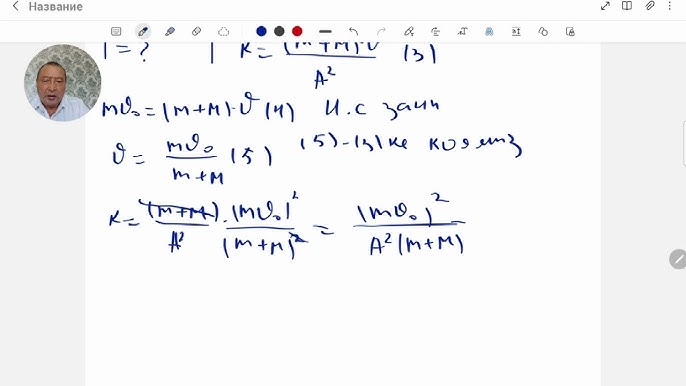 Название
T = ? | K = (m+M)·υ / A² (3)
mυ₀ = (m+M)·υ (4) И.с занн
υ = mυ₀ / (m+M) (5) (5)-(3) ке коямз
K = (m+M) / A² · (mυ₀)² / (m+M)² = (mυ₀)² / A²(m+M)